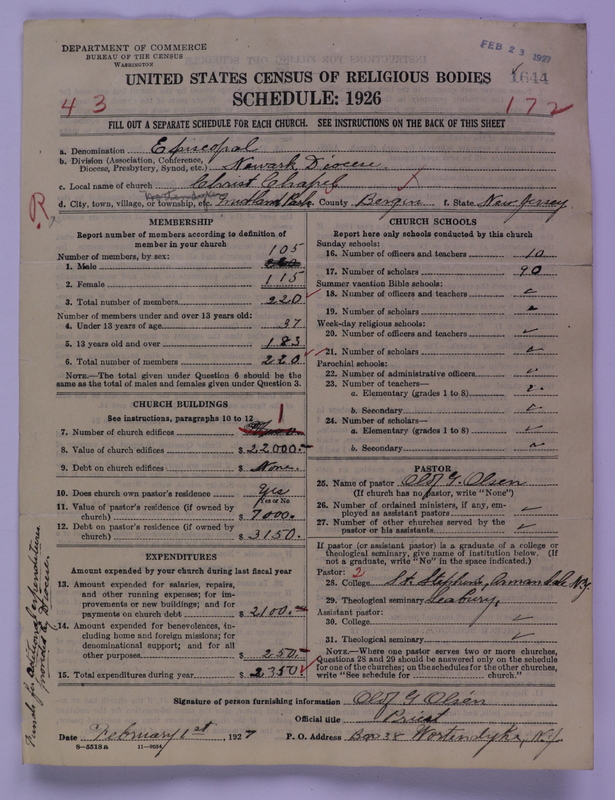 DEPARTMENT OF COMMERCE
BUREAU OF THE CENSUS
WASHINGTON
FEB 23 1927
UNITED STATES CENSUS OF RELIGIOUS BODIES
1644
SCHEDULE: 1926
43
172
FILL OUT A SEPARATE SCHEDULE FOR EACH CHURCH. SEE INSTRUCTIONS ON THE BACK OF THIS SHEET
a. Denomination Episcopal
b. Division (Association, Conference, Diocese, Presbytery, Synod, etc.) Newark Diocese
c. Local name of church Christ Chapel
Wortendyke
R
d. City, town, village, or township, etc. County Bergen f. State New Jersey
MEMBERSHIP
Report number of members according to definition of
member in your church
Number of members, by sex:
1. Male 105
2. Female 115
3. Total number of members 220
Number of members under and over 13 years old:
4. Under 13 years of age 37
5. 13 years old and over 183
6. Total number of members 220
NOTE.—The total given under Question 6 should be
the same as the total of males and females given under Question 3.
CHURCH BUILDINGS
See instructions, paragraphs 10 to 12
7. Number of church edifices 1
8. Value of church edifices $ 22000.
9. Debt on church edifices $ None.
10. Does church own pastor's residence Yes
Yes or No
11. Value of pastor's residence (if owned by
church) $ 7000.
12. Debt on pastor's residence (if owned by
church) $ 3150.
EXPENDITURES
Amount expended by your church during last fiscal year
13. Amount expended for salaries, repairs,
and other running expenses; for im-
provements or new buildings; and for
payments on church debt $ 2100.
14. Amount expended for benevolences, in-
cluding home and foreign missions; for
denominational support; and for all
other purposes $ 250.
15. Total expenditures during year $ 2350.
Funds for additional expenditures
provided by Diocese.
CHURCH SCHOOLS
Report here only schools conducted by this church
Sunday schools:
16. Number of officers and teachers 10
17. Number of scholars 90
Summer vacation Bible schools:
18. Number of officers and teachers
19. Number of scholars
Week-day religious schools:
20. Number of officers and teachers
21. Number of scholars
Parochial schools:
22. Number of administrative officers
23. Number of teachers—
a. Elementary (grades 1 to 8)
b. Secondary
24. Number of scholars—
a. Elementary (grades 1 to 8)
b. Secondary
PASTOR
25. Name of pastor Olof G. Olsen
(If church has no pastor, write "None")
26. Number of ordained ministers, if any, em-
ployed as assistant pastors
27. Number of other churches served by the
pastor or his assistants
If pastor (or assistant pastor) is a graduate of a college or
theological seminary, give name of institution below. (If
not a graduate, write "No" in the space indicated.)
Pastor: 2
28. College St. Stephens, Annandale N.Y.
29. Theological seminary Seabury.
Assistant pastor:
30. College
31. Theological seminary
NOTE.—Where one pastor serves two or more churches,
Questions 28 and 29 should be answered only on the schedule
for one of the churches; on the schedules for the other churches,
write "See schedule for church."
Signature of person furnishing information Olof G Olsen
Official title Priest
Date February 1st, 1927 P. O. Address Box 38 Wortendyke, N.J.
8—5518a 11—9034